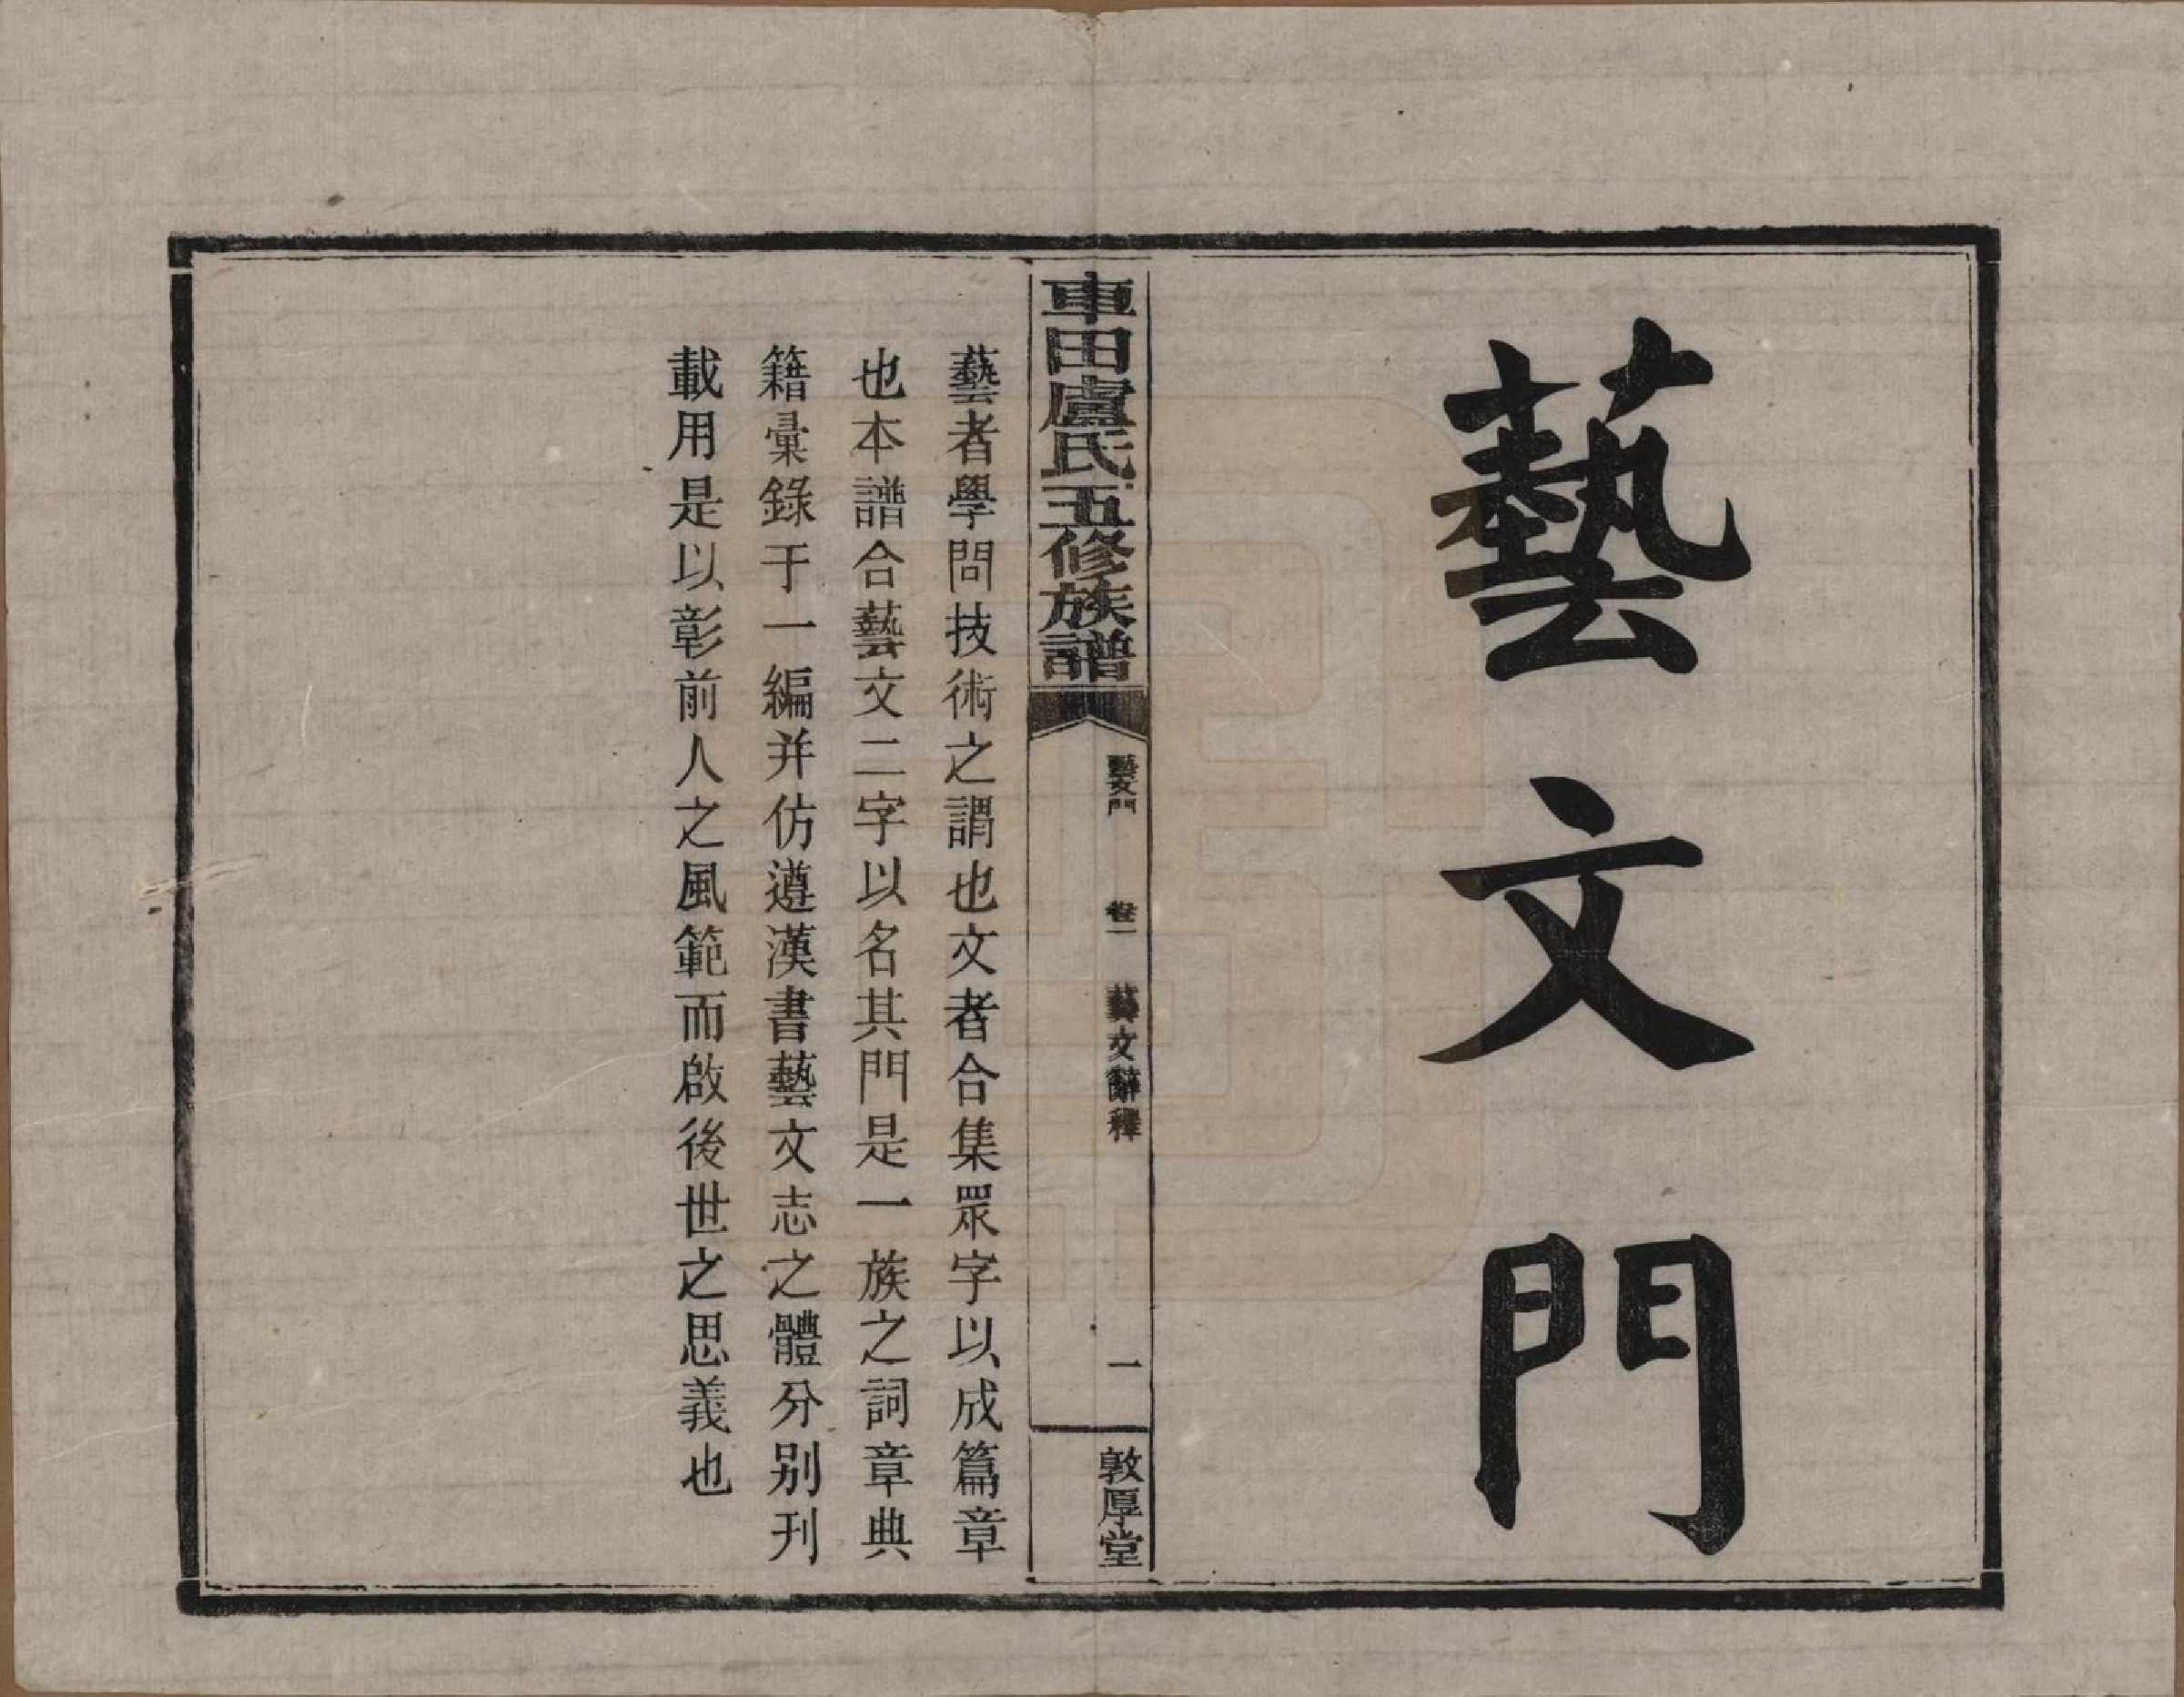 藝文門
車田盧氏五修族譜
藝文門 卷一 藝文辭釋 一
敦厚堂
藝者學問技術之謂也文者合集眾字以成篇章
也本譜合藝文二字以名其門是一族之詞章典
籍彙錄于一編并仿遵漢書藝文志之體分別刊
載用是以彰前人之風範而啟後世之思義也